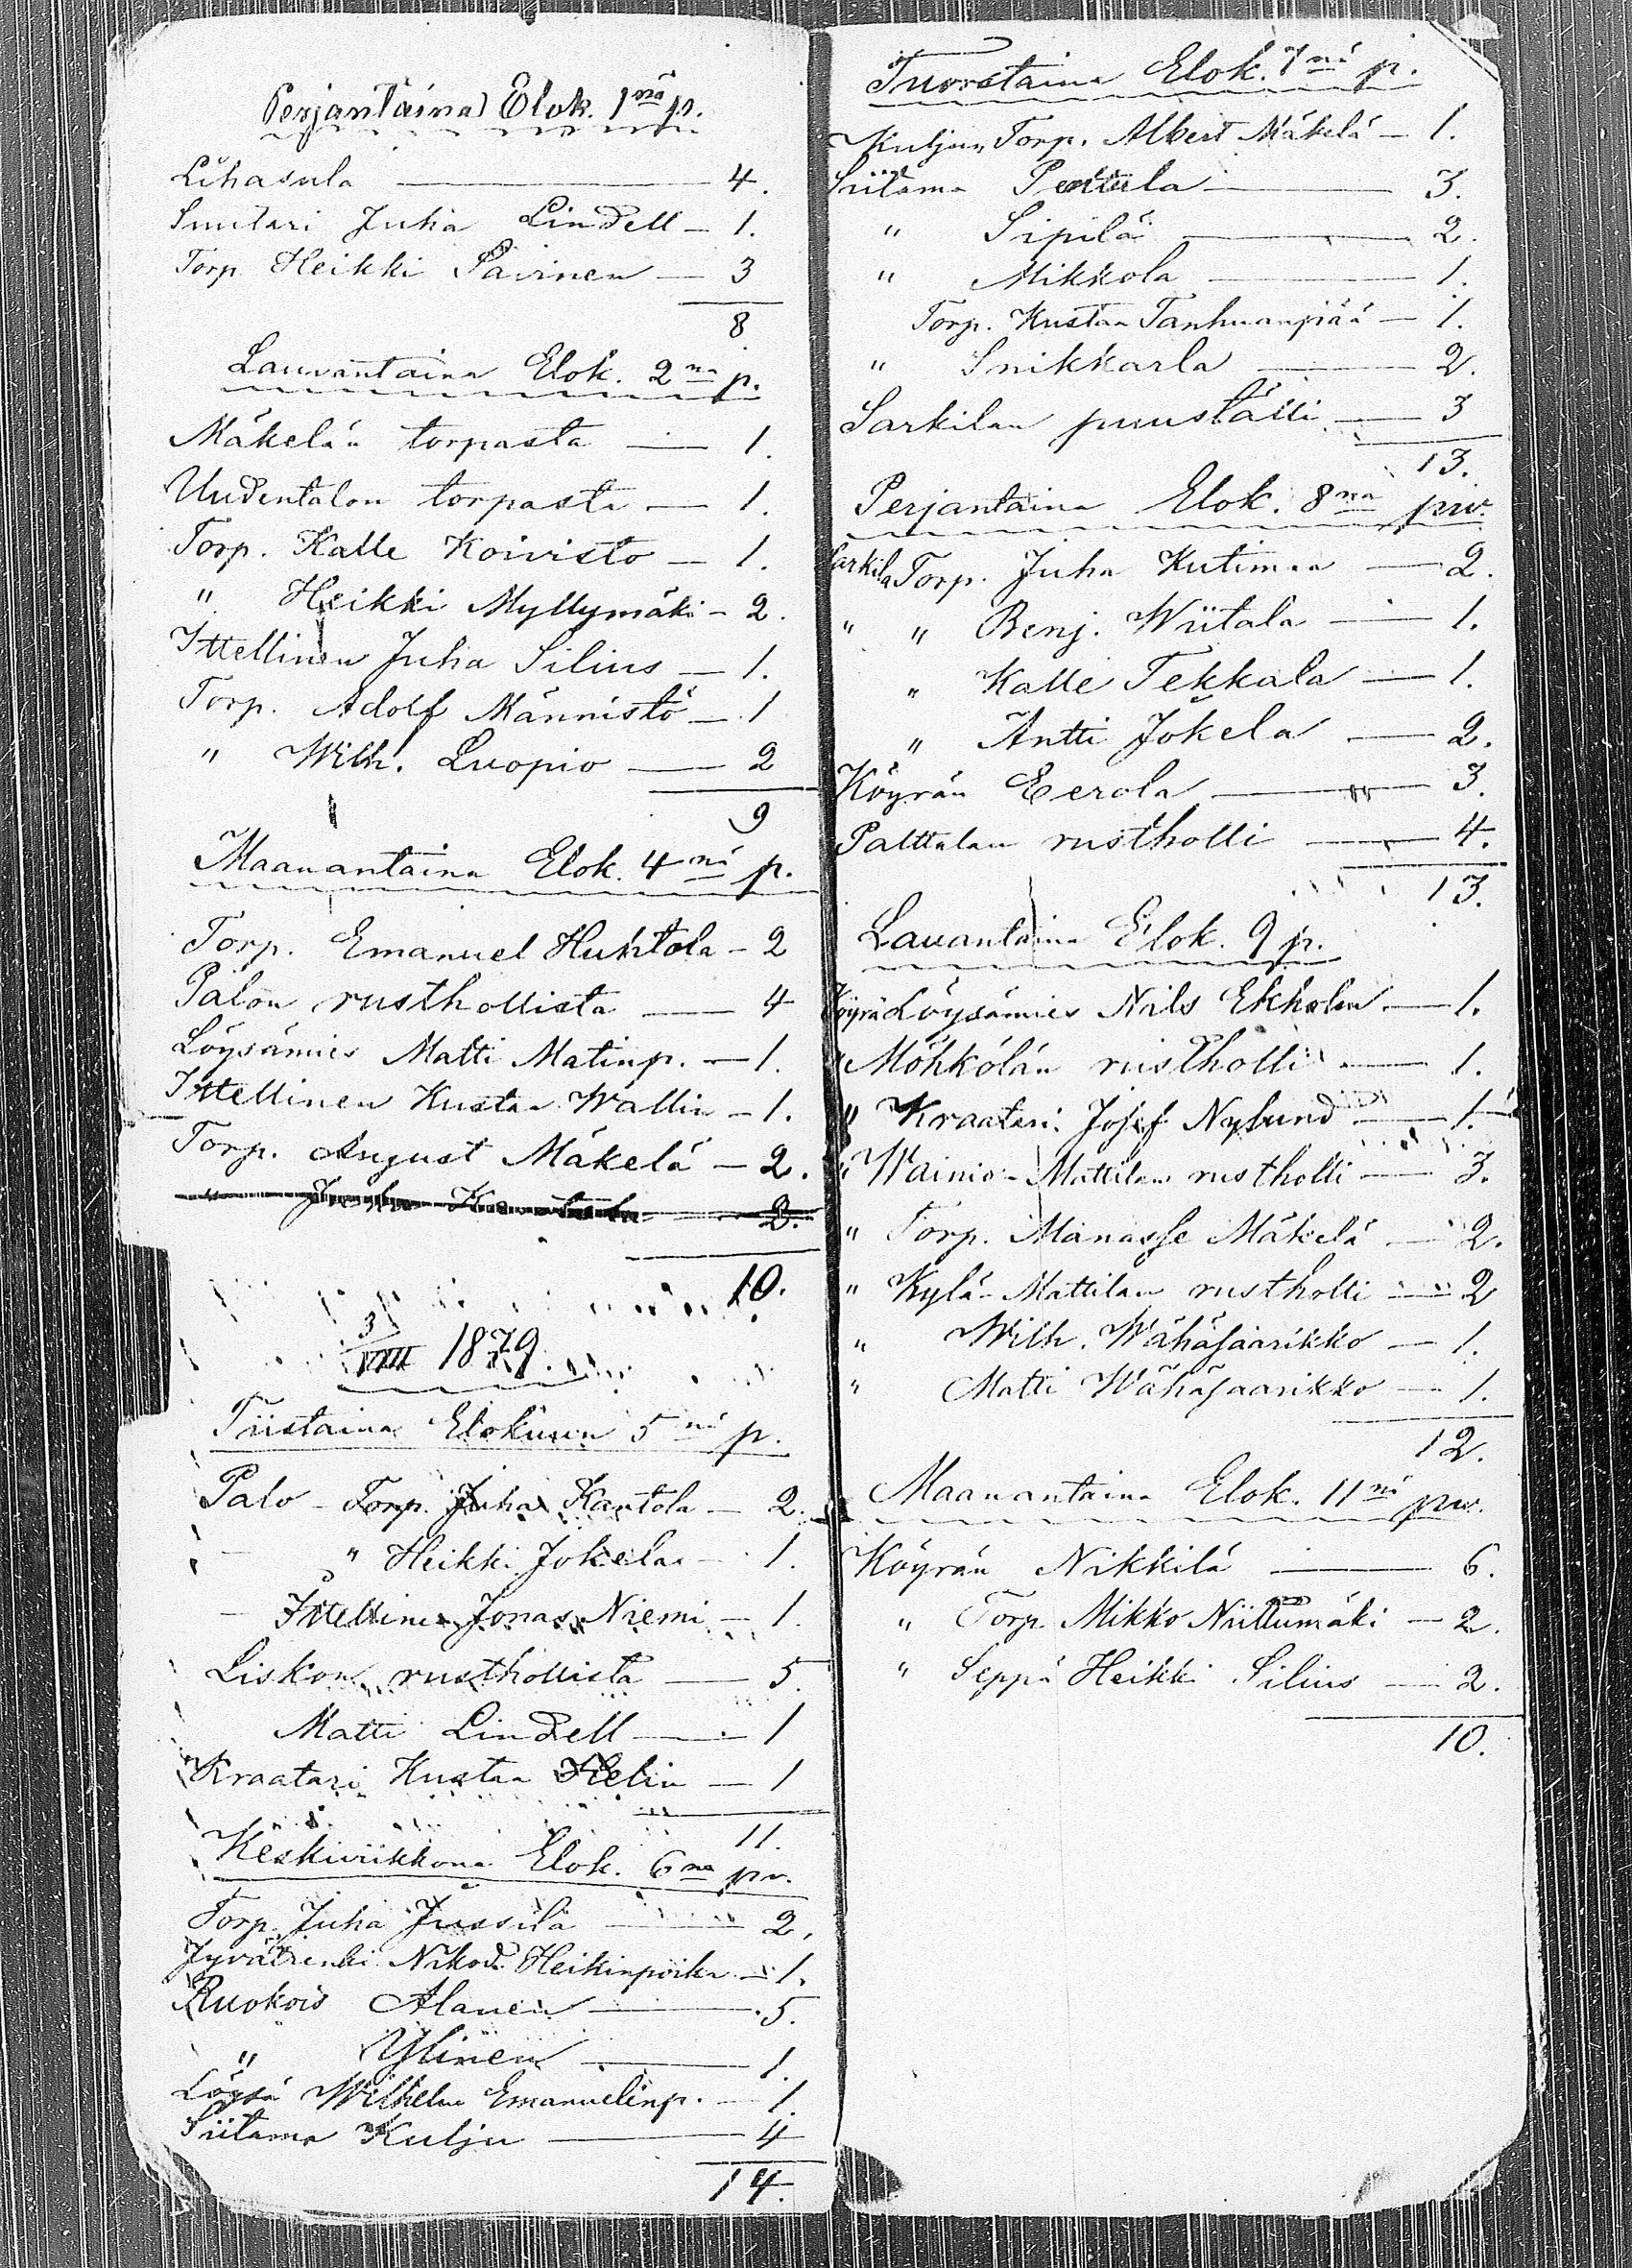 Perjantaina Elok. 1nä p.
Lihasula — 4.
Suutari Juha Lindell — 1.
Torp. Heikki Päivinen — 3
8
Lauvantaina Elok. 2na p.
Mäkelän torpasta — 1.
Uudentalon torpasta — 1.
Torp. Kalle Koivisto — 1.
" Heikki Myllymäki — 2.
Ittellinen Juha Silius — 1.
Torp. Adolf Männistö — 1
" Wilh. Luopio — 2
9
Maanantaina Elok. 4nä p.
Torp. Emanuel Huhtola — 2
Palon rusthollista — 4
Löysämies Matti Matinp. — 1.
Ittellinen Kustaa Wallin — 1.
Torp. August Mäkelä — 2.
" Juha Kantola — 2.
10.
3/VIII 1879.
Tiistaina Elokuun 5nä p.
Palo - Torp. Juha Kantola — 2.
- " Heikki Jokela — 1.
- Ittellinen Jonas Niemi — 1.
Liskon rusthollista — 5.
Matti Lindell — 1
Kraatari Kustaa Helin — 1
11.
Keskiviikkona Elok. 6na pv.
Torp. Juha Jussila — 2.
Jyvärenki Nikod. Heikinpoika — 1.
Ruokois Alanen — 5.
" Ylinen — 1.
Löysä Wilhelm Emanuelinp. — 1.
Siitama Kulju — 4
14.
Tuorstaina Elok. 7nä p.
Kuljun Torp. Albert Mäkelä — 1.
Siitama Penttila — 3.
" Sipilä — 2.
" Mikkola — 1.
Torp. Kustaa Tanhuanpää — 1.
" Snikkarla — 2.
Sarkilan puuställi — 3
13.
Perjantaina Elok. 8na piv.
Sarkila Torp. Juha Kutimaa — 2.
" " Benj. Wiitala — 1.
" Kalle Tekkala — 1.
" Antti Jokela — 2.
Köyrän Eerola — 3.
Palttalan rustholli — 4.
13.
Lauantaina Elok. 9 p.
Köyrä Löysämies Nils Ekholm — 1.
" Möhkölän rustholli — 1.
" Kraatari Josef Nylund — 1.
" Wainio-Mattilan rustholli — 3.
" Torp. Manasse Mäkelä — 2.
" Kylä-Mattilan rustholli — 2
" Wilh. Wähäsaarikko — 1.
" Matti Wähäsaarikko — 1.
12.
Maanantaina Elok. 11nä piv.
Köyrän Nikkilä — 6.
" Torp. Mikko Niittumäki — 2.
" Seppä Heikki Silius — 2.
10.